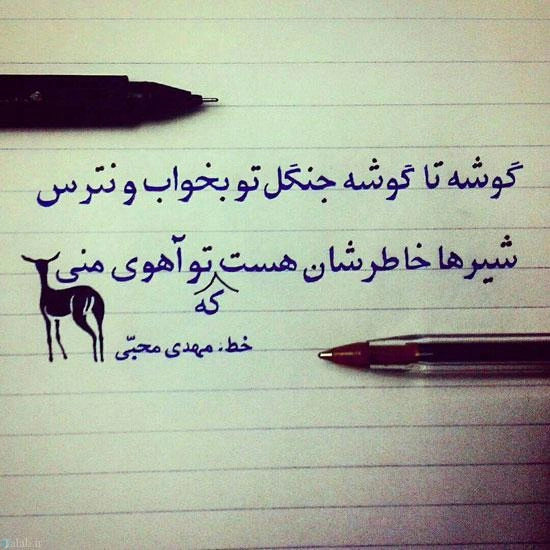 گوشه تا گوشه جنگل تو بخواب و نترس
شیرها خاطرشان هست تو آهوی منی
که
خط: مهدی محبّی